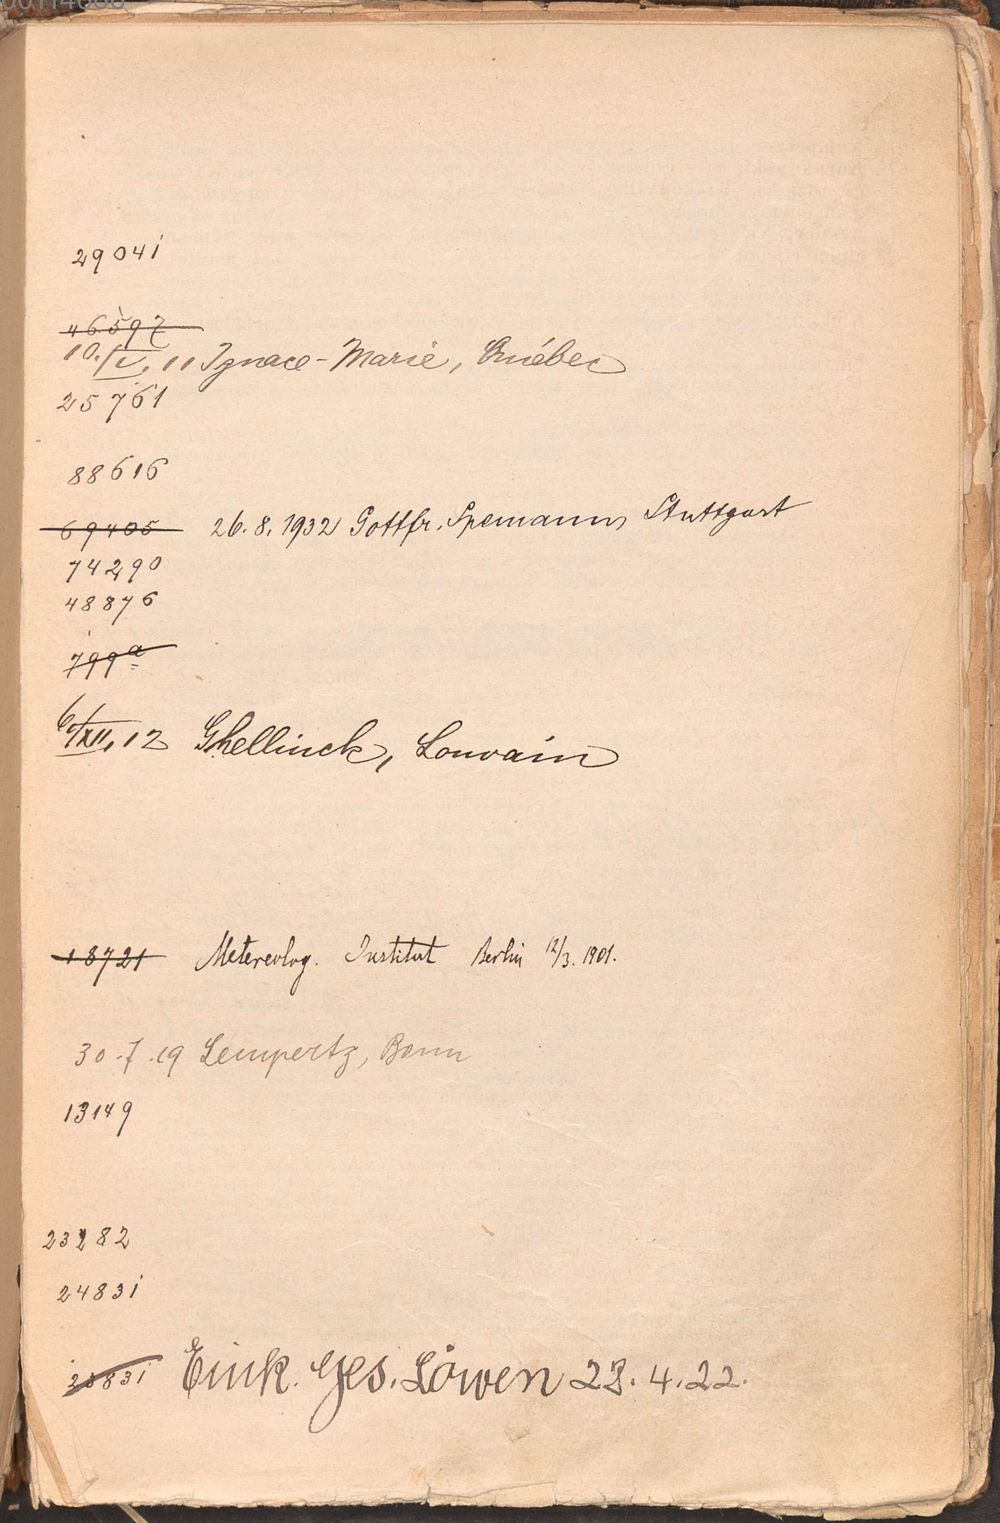 29041
46597
10./V. 11 Ignace-Marie, Québec
25761
88616
69405 26.8.1932 Gottfr. Spemann, Stuttgart
74290
48876
799a
6/XII. 12 Ghellinck, Louvain
18721 Metereolog. Institut Berlin 12/3. 1901.
30.7.19 Lempertz, Bonn
13149
23282
24831
Eink. Ges. Löwen 23.4.22.